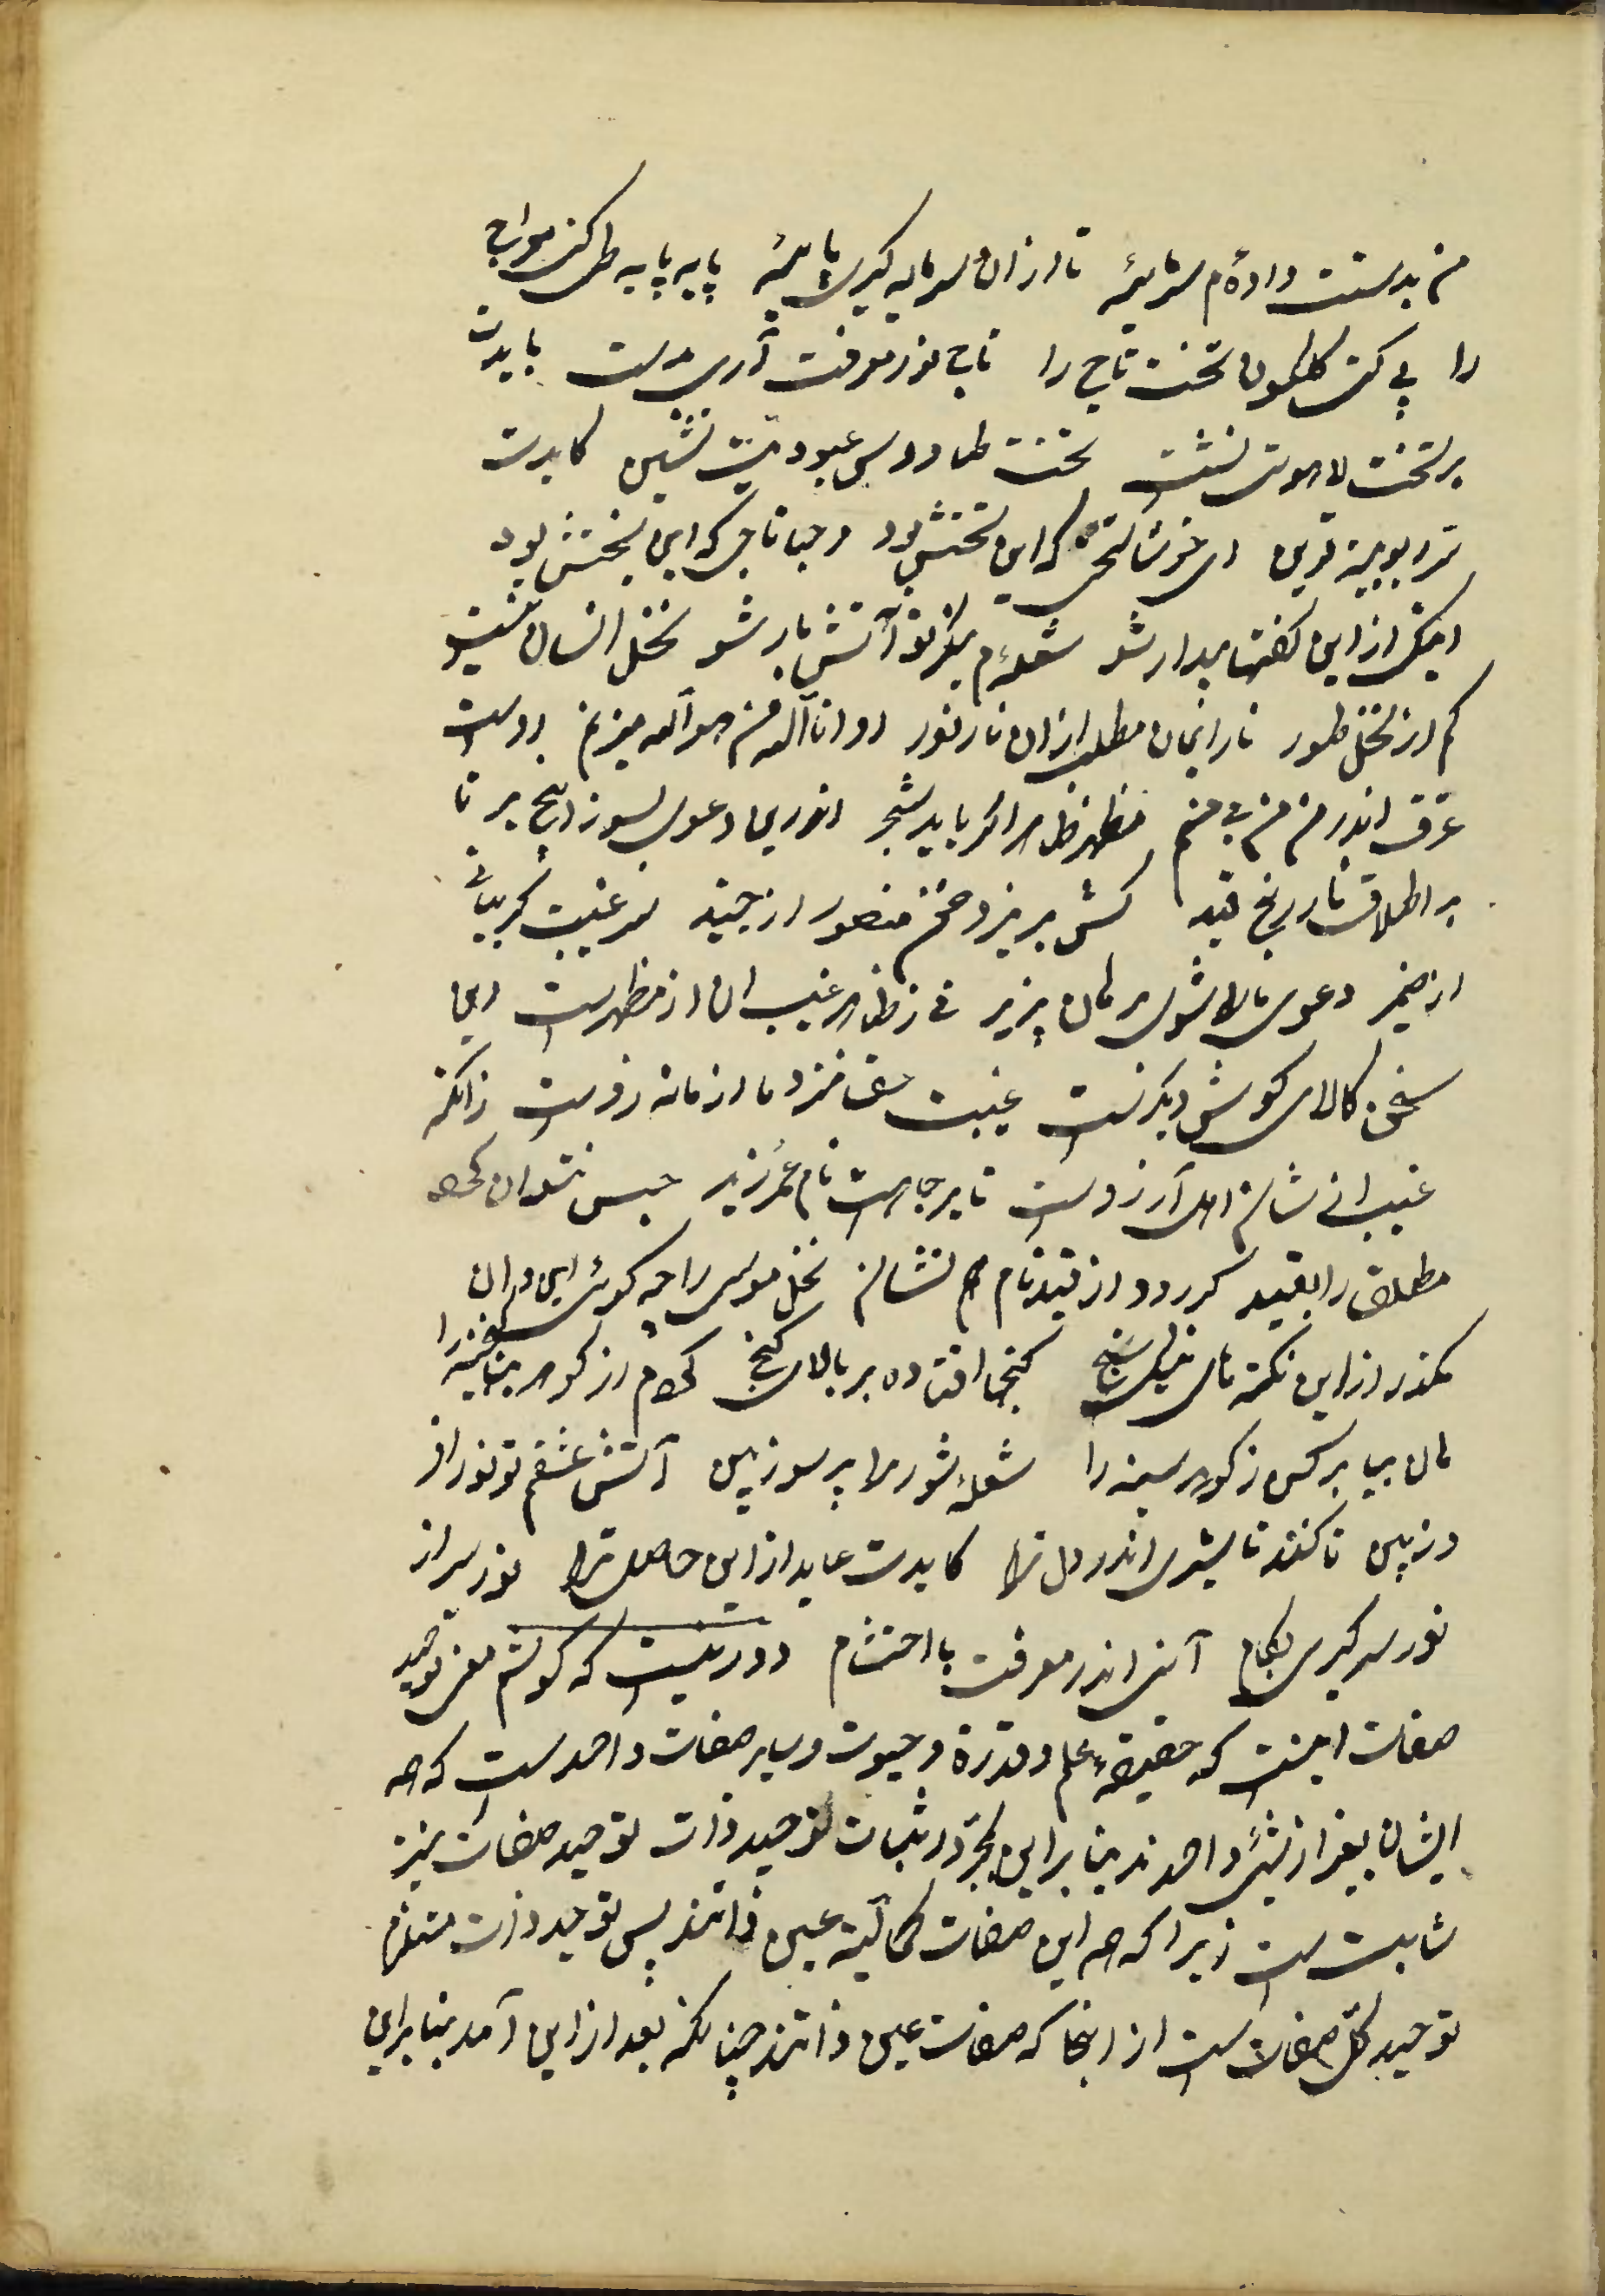 من بدستت داده‌ام سرمایهٔ تا از آن سرمایه گیری پایهٔ پایه پایه طی کنی معراج
را پی کنی کالملون تخت تاج را تاج نور معرفت آری بدست بایدت
بر تخت لاهوتی نشست تخت طاووس عبودیت نشین کایدت
تو ربوبیة قرین ای خوشا تختی که این تختش بود مرحبا تاجی که این بختش بود
ایکه از این گفتها بیدار شو شعله‌ام بنگر تو آتش بار شو نخل انسان نیستی تو
کم از نخل طور نار ایمان مطلب از آن نار نور او انا الله من هو الله میزنم اوست
غرق اندر من من بی منم مظهر ظاهر اگر باید شجر انوری دعوی بسوز ایچ بر تا
بر اطلاقت نارنج قید کش بریزد خون منصور از جنید سر غیبت گر بیانی
از ضمیر دعوی بالا شوی برهان پذیر نی ز ظاهر غیب آن از مظهرست این
سخن کالای گوش دیگرست غیبت حق نزد ما از ما نه زوست زانکه
غیب آنی شانه اهل آرزوست تا برجاست نام عمر زید حبس نتوان کرد
مطلق را بقید گر رود از قید نام هم نشان نخل موسی را چه گوئی این و آن
بگذر از این نکته‌های نیک سنج گنجها افتاده بر بالای گنج کردم از گوهر بنا گنجینه را
هان بیا برکش ز گوهر سینه را شعله شور مرا پر سوز بین آتش عشقم تو نور افـ
ـروز بین تا کند تأثیری اندر دل ترا کایدت عاید از این حاصل ترا نور سر از
نور سر گیری بکام آئی اندر معرفت با احتشام دور نیست که گوئیم معنی توحید
صفات اینست که حقیقة علم و قدرة و حیوت و سایر صفات واحد است که همه
ایشان بغیر از شیئی واحد ند بنا بر این بمجرّد اثبات توحید ذات توحید صفات نیز
ثابت است زیرا که همه این صفات کمالیّه عین ذاتند پس توحید ذات مستلزم
توحید کلّ صفات است از آنجا که صفات عین ذاتند چنانکه بعد از این آمد بنا بر این